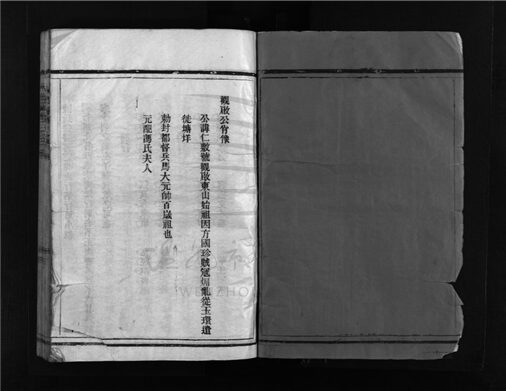 觀啟公肖像
公諱仁數號觀啟東山始祖因方國珍賊寇煽亂從玉環遺
徙塘垟
勅封都督兵馬大元帥百歲祖也
元配蔣氏夫人